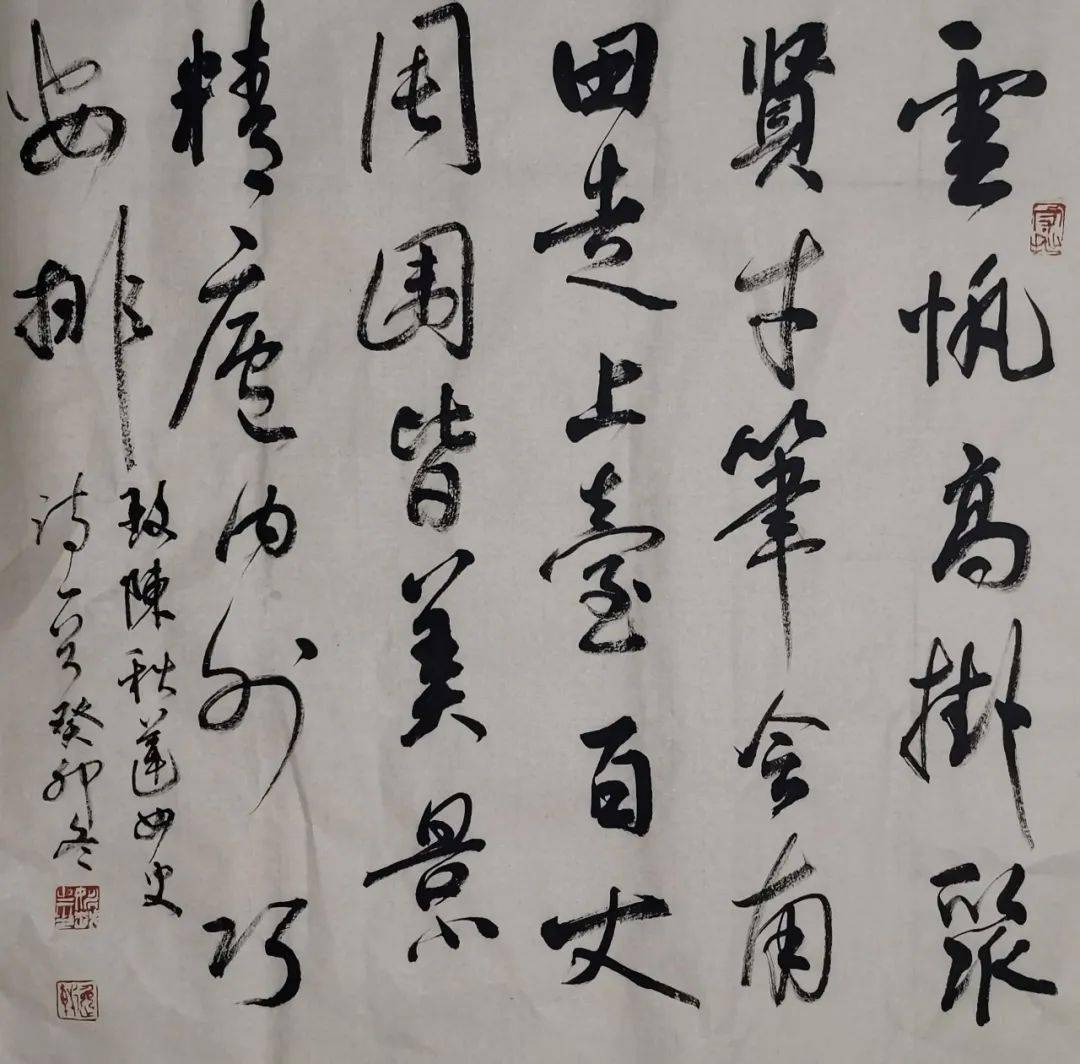 雲帆高掛聚
賢才筆會南
田走上臺百丈
周圍皆美景
精廬内外巧
安排
致陳秋蓮女史
詩一首癸卯冬